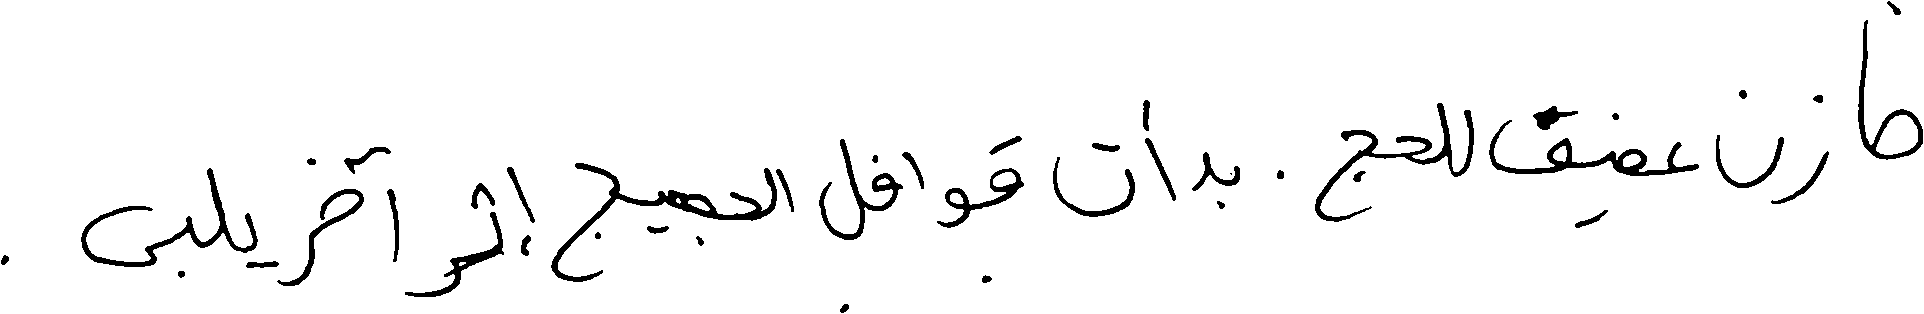 مازن عضيف للحج . بدأت قوافل الحجيج إثر آخر يلبي .